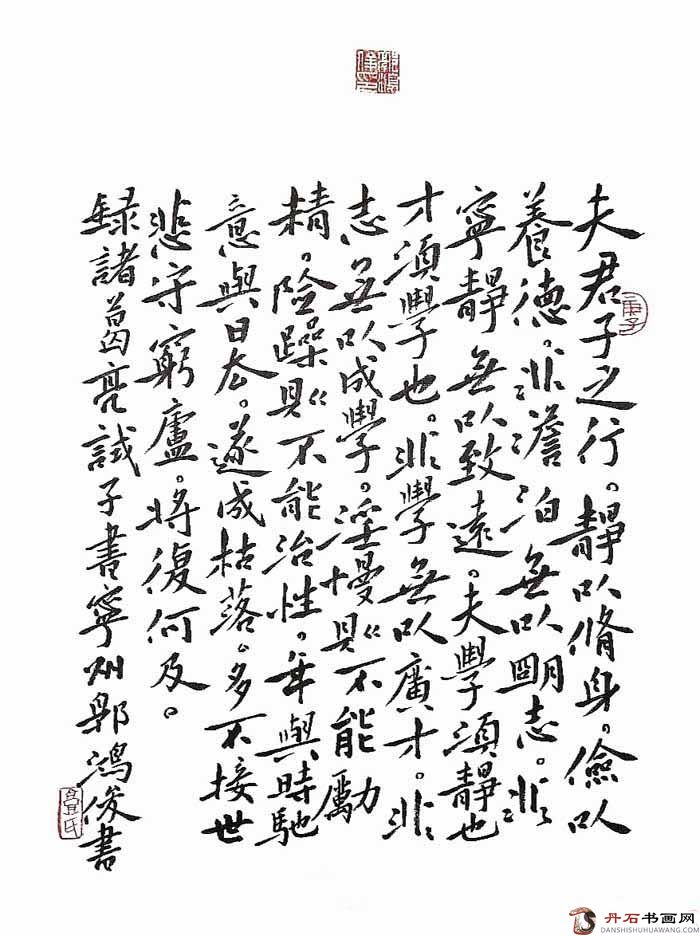 夫君子之行。靜以脩身。儉以
養德。非澹泊無以明志。非
寧靜無以致遠。夫學須靜也
才須學也。非學無以廣才。非
志無以成學。淫慢則不能勵
精。險躁則不能治性。年與時馳
意與日去。遂成枯落。多不接世
悲守窮廬。將復何及。
録諸葛亮誡子書寧州郭鴻俊書
丹石书画网
DANSHISHUHUAWANG.COM